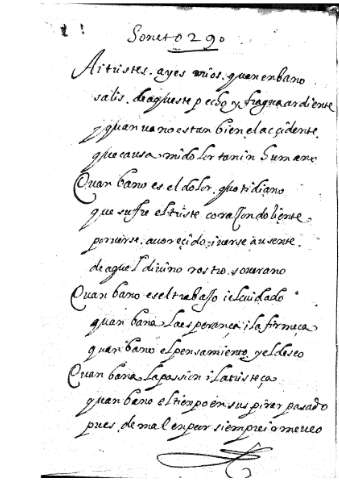 Soneto 290
Ai tristes. ayes mios. quan en bano
salis. de aqueste pecho y fragua ardiente
y quan vano es tan bien el acçidente
que causa mi dolor tan in humano
Quan bano es el dolor. quotidiano
que sufre el triste corasson doliente
por verse. avoreçido, i verse ausente.
de aquel divino rostro. soverano
Quan bano es el trabasso i el cuidado
quan bana la esperança i la firmeça
quan bano el pensamiento, y el deseo
Quan bana la passion i la tristeça
quan bano el tienpo en suspirar pasado
pues. de mal en peor siempre io me veo